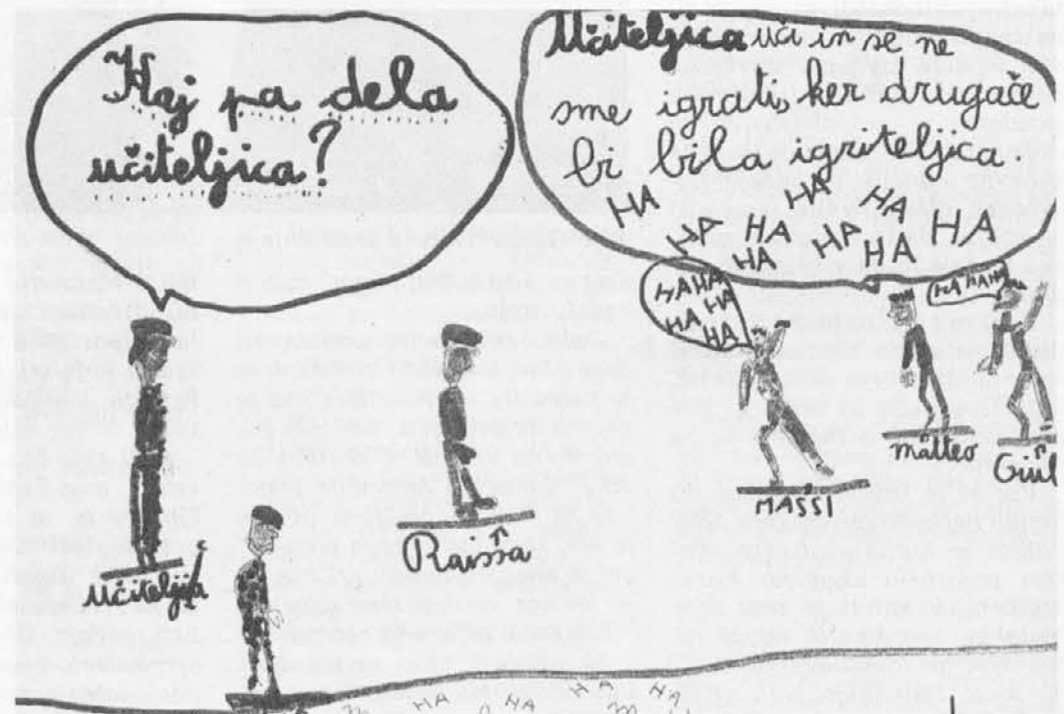 Kaj pa dela
učiteljica?
Učiteljica uči in se ne
sme igrati, ker drugače
bi bila igriteljica.
HA HA HA
HA HA HA HA HA
HA
HAHA
HA
HA
HA
HA HAHA
Učiteljica
Raissa
MASSI
matteo
Giul
HA HA HA HA